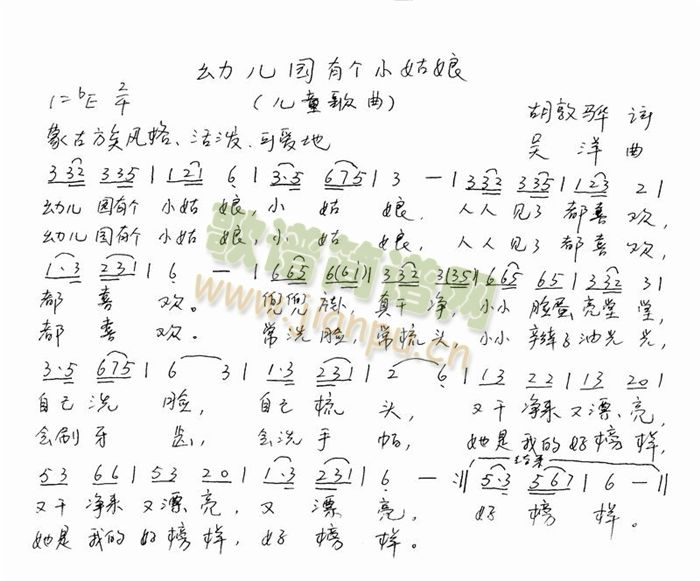 幼儿园有个小姑娘
1=ᵇE 2/4
(儿童歌曲)
胡敦骅 词
蒙古族风格、活泼、可爱地
吴 洋 曲
3 32 3 35 | 1 21 6 | 3·5 675 | 3 — | 3 32 3 35 | 1 23 2 |
幼儿园有个 小姑 娘, 小 姑 娘, 人人见了 都喜 欢,
幼儿园有个 小姑 娘, 小 姑 娘, 人人见了 都喜 欢,
1·3 231 | 6 — | 6 65 6(61) | 3 32 3(35) | 6 65 65 | 3 32 31 |
都 喜 欢。 兜兜 真干净, 小小 脸蛋 亮堂堂,
都 喜 欢. 常洗脸, 常梳头, 小小 辫子 油光光,
3·5 675 | 6 3 | 1·3 231 | 2 6 | 13 22 | 13 20 |
自己洗 脸, 自己梳 头, 又干 净来 又漂亮,
会刷牙 齿, 会洗手 帕, 她是 我的 好榜样,
53 66 | 53 20 | 1·3 231 | 6 — :|| 结束 5·3 567 | 6 — ||
又干 净来 又漂亮, 又 漂 亮, 好 榜 样。
她是 我的 好榜样, 好 榜 样。
歌谱简谱网
www.jianpu.cn